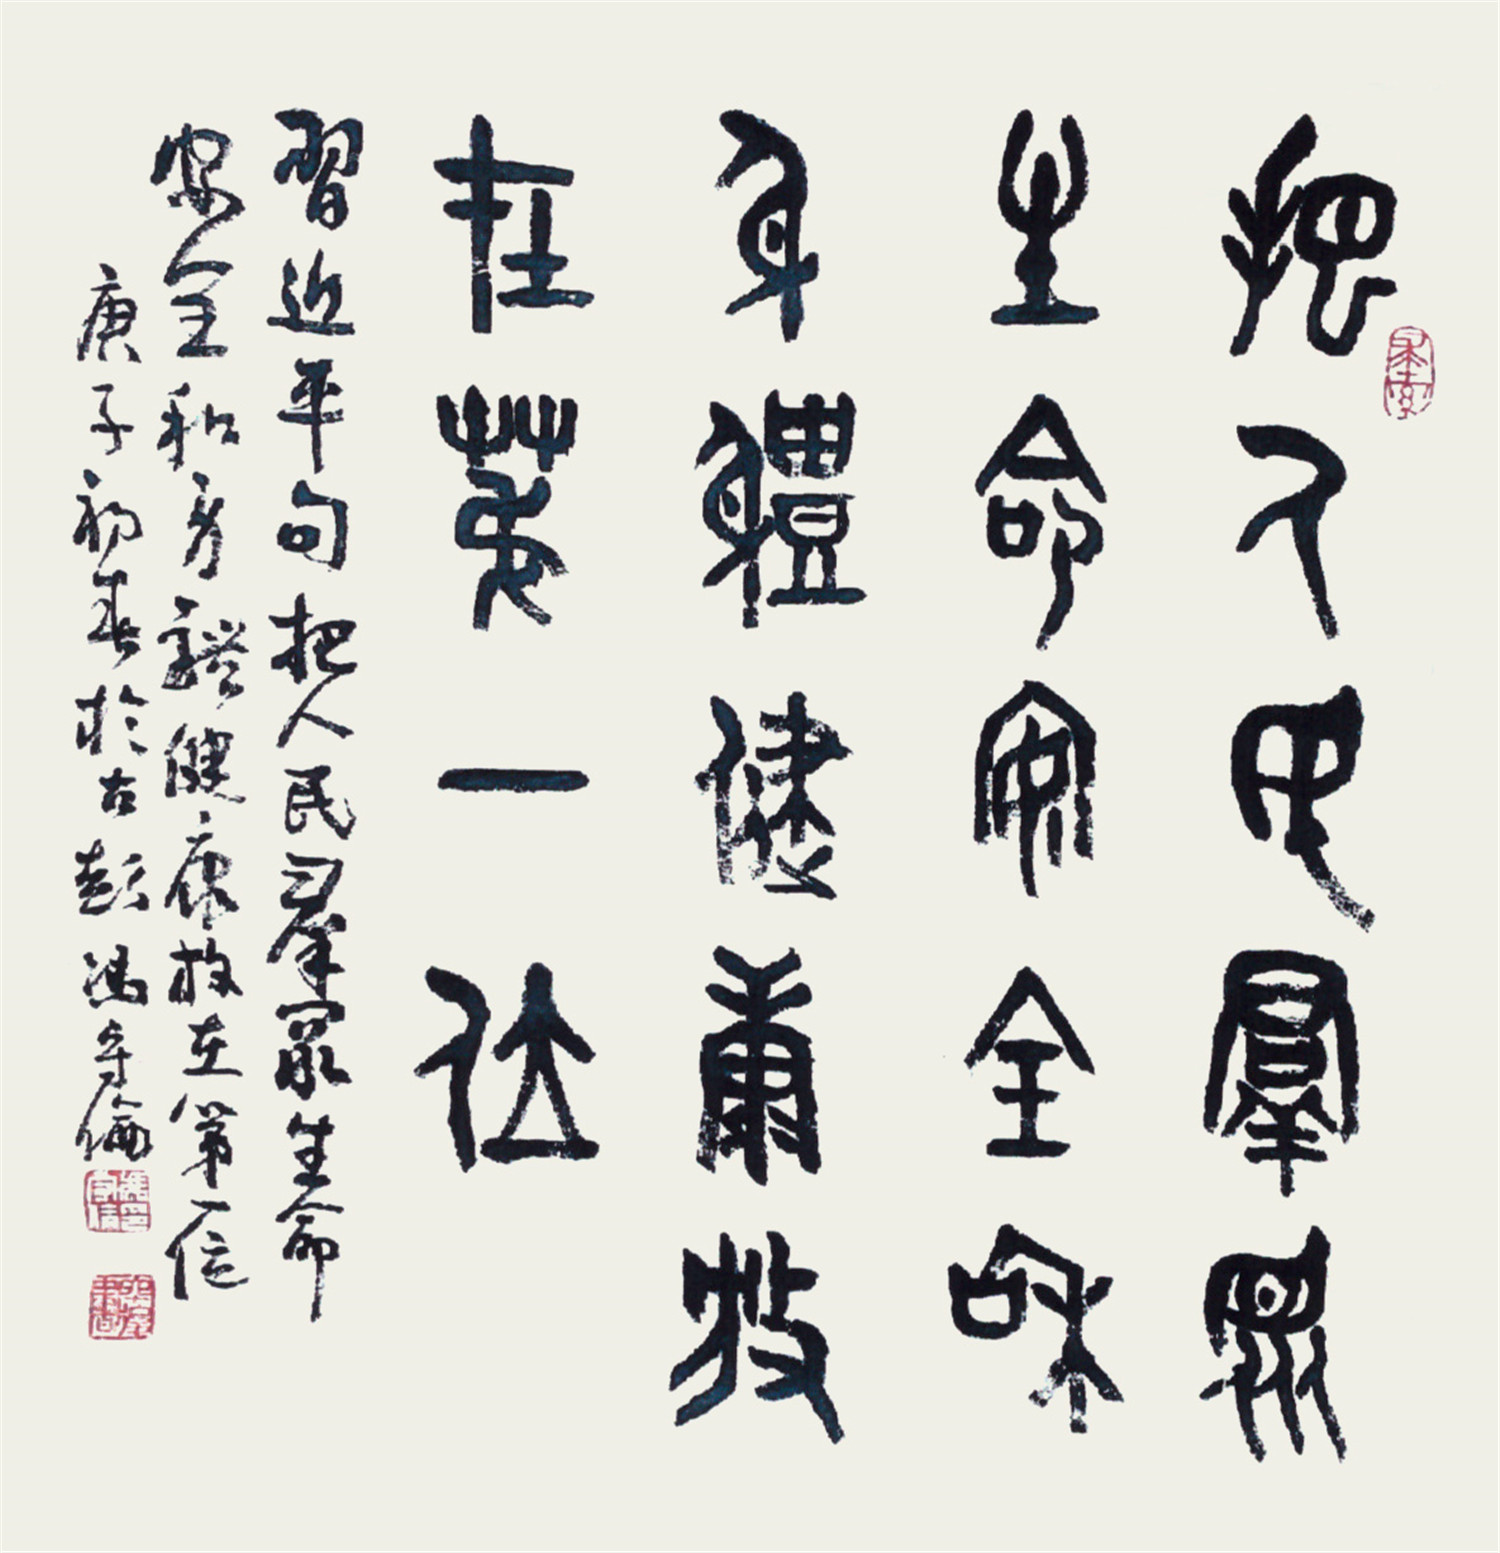 把人民群眾
生命安全和
身體健康放
在第一位
習近平句把人民羣眾生命
安全和身體健康放在第一位
庚子初春於古彭馮守倫